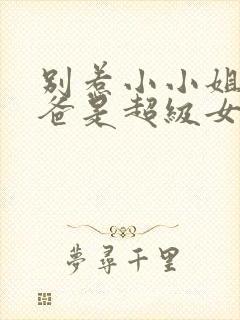 别惹小小姐
爸是超级女
夢尋千里